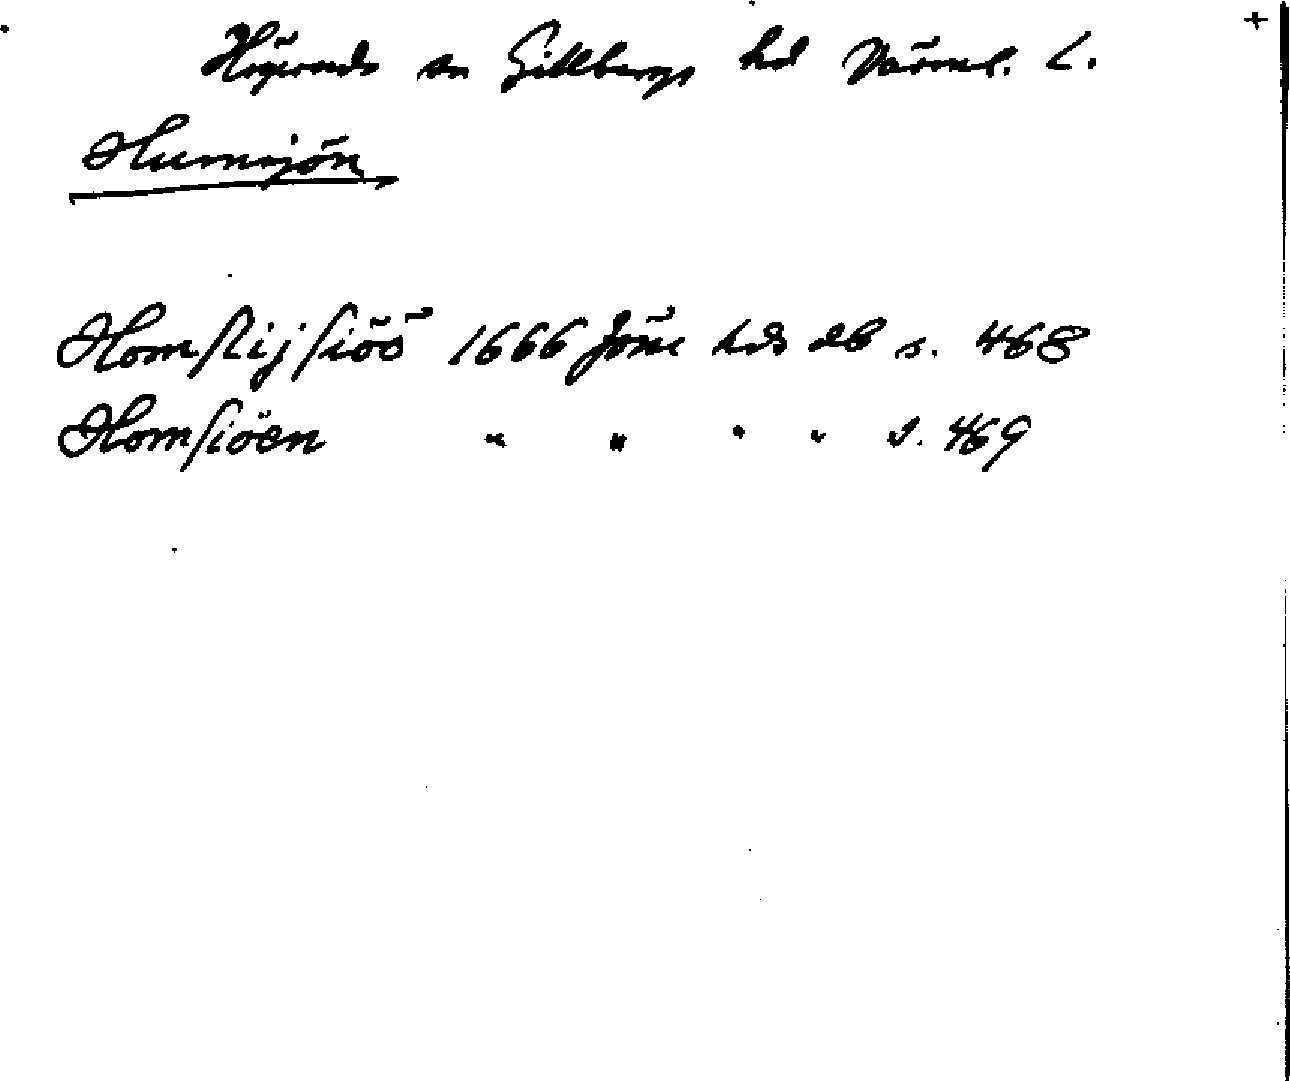 Högeruds sn Gillbergs hd Värml. L.
Humsjön
Homſlijſiöö 1666 Jöße hds db s. 468
Homſiöen " " " " s. 469